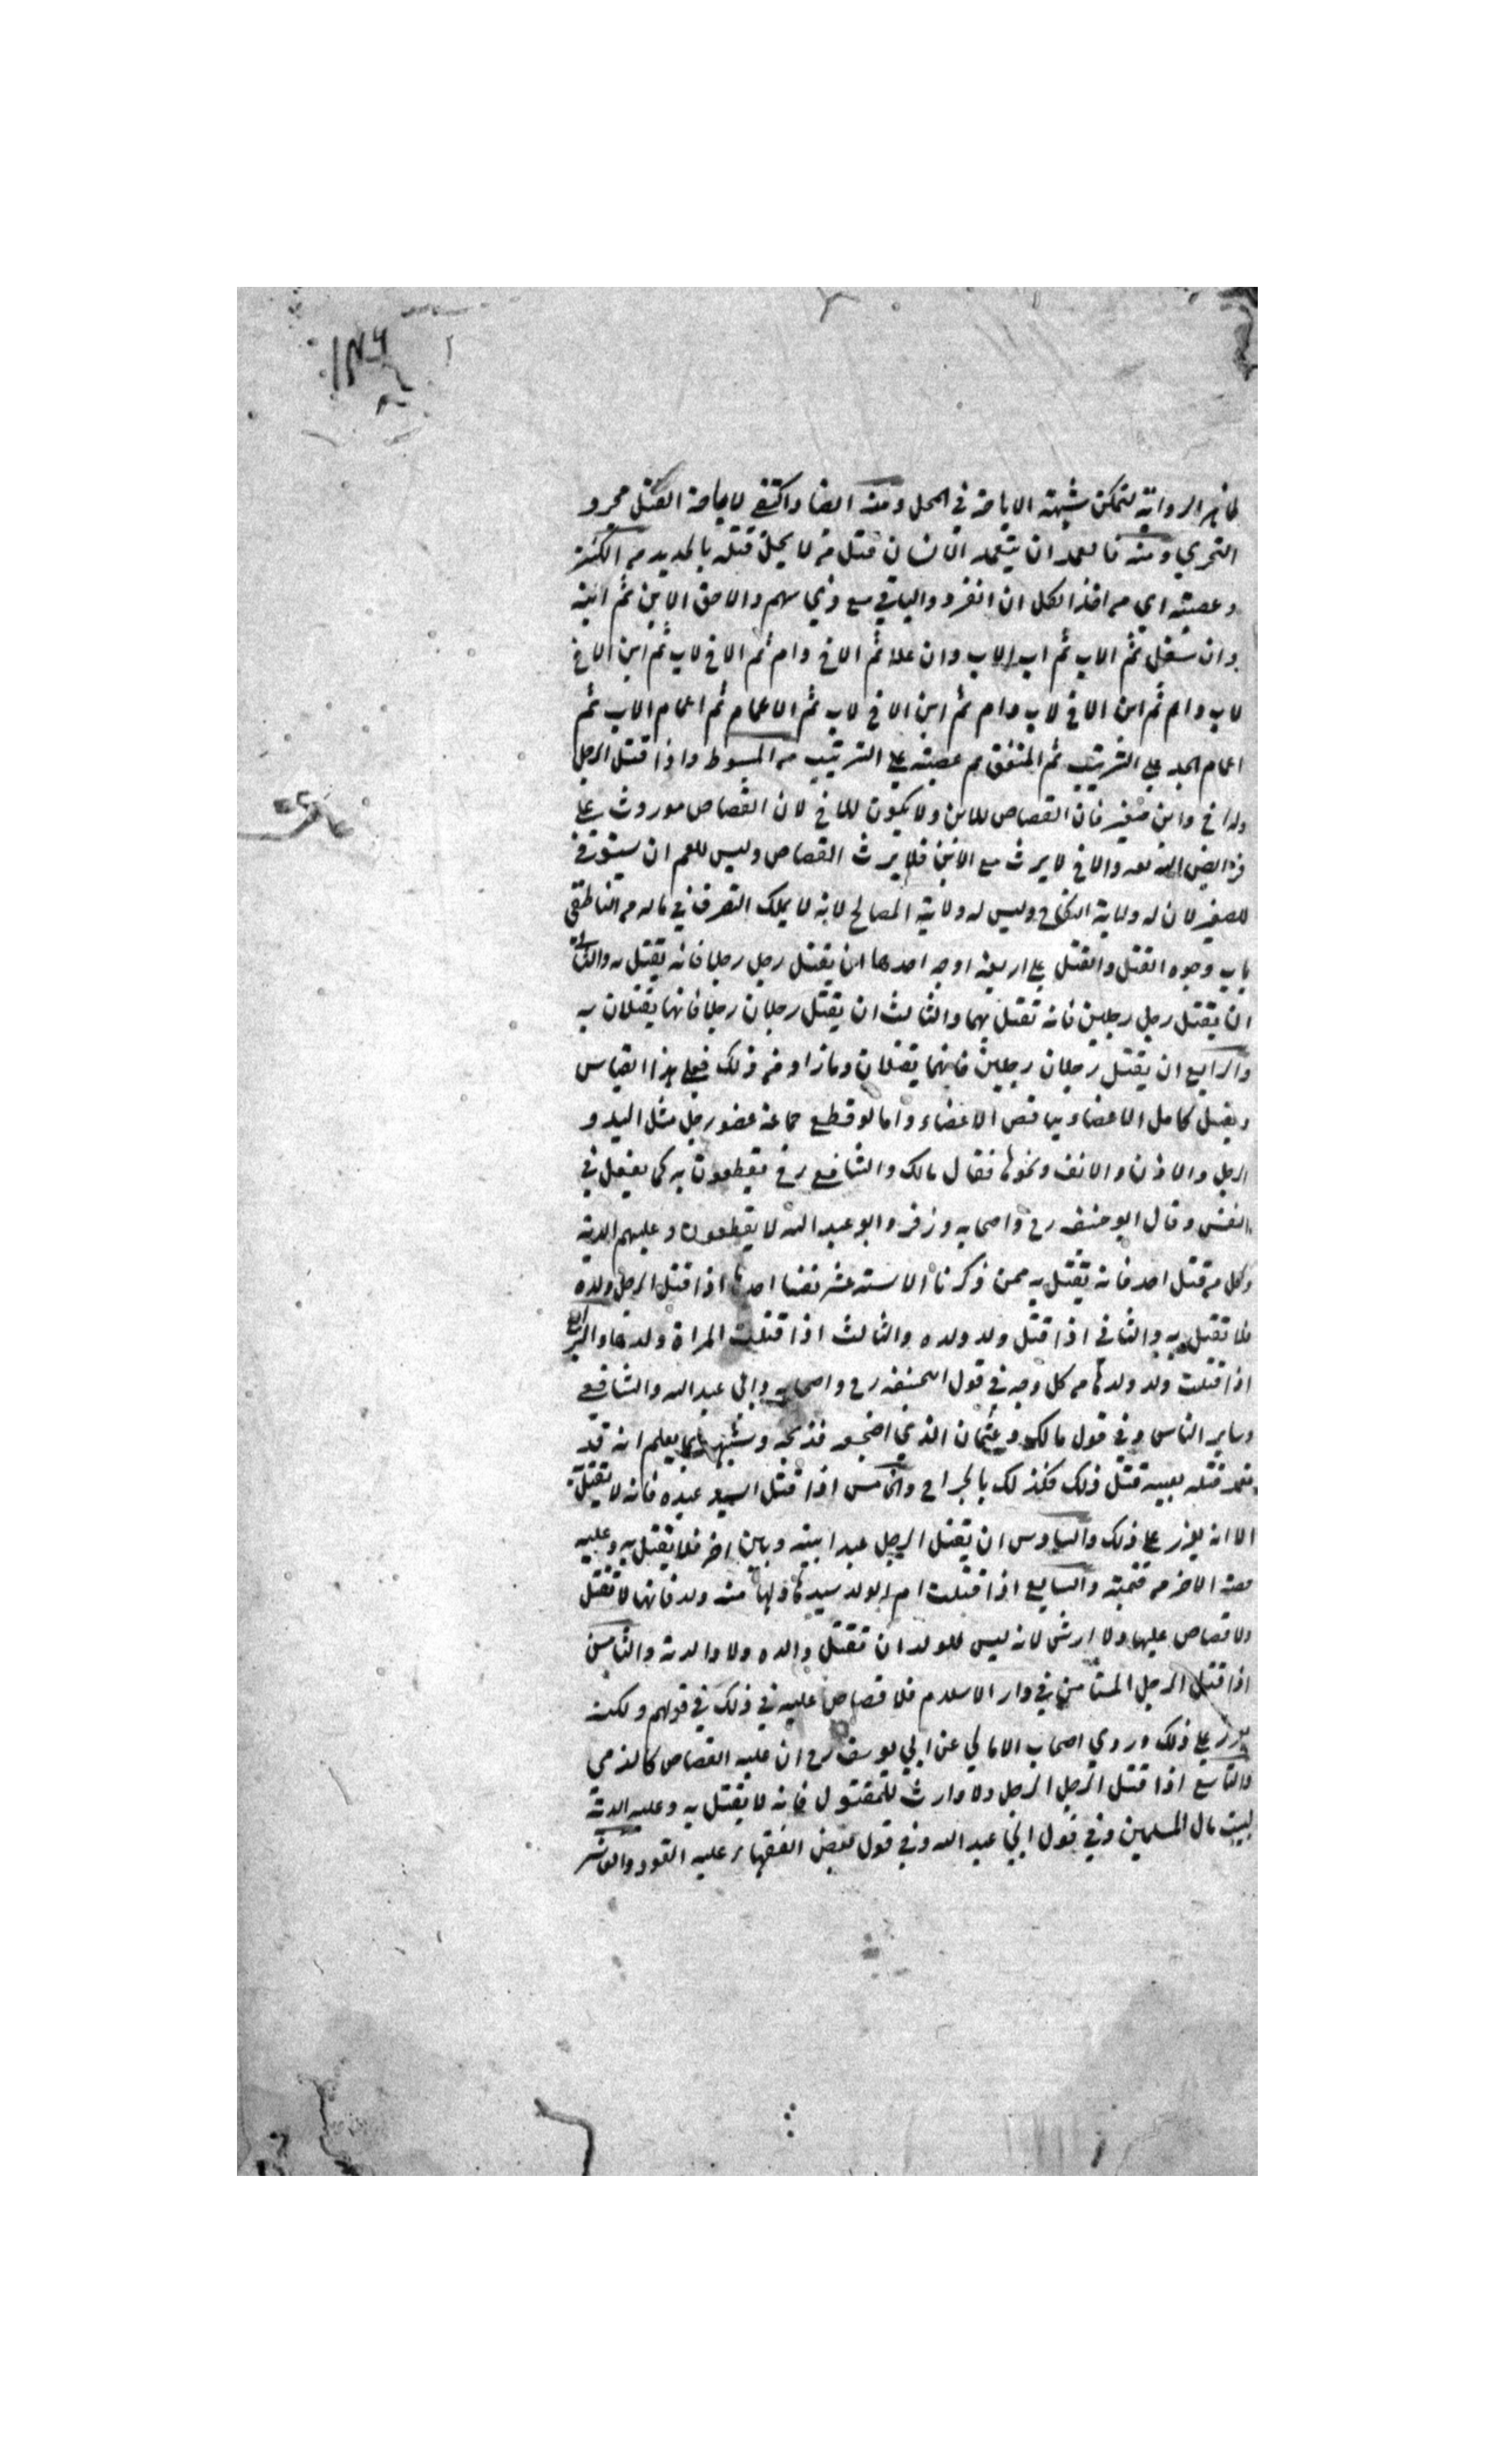 ظاهر الرواية لتمكن شبهة الاباحة في المحل ومنه ايضا واكتفى لاباحة القتل مجرد
التحري ومنه فالعمد ان يتعمد الانسان قتل من لا يحل قتله بالحديد من الكنز
وعصبته اي من اخذ الكل ان انفرد والباقي مع ذي سهم والاحق الابن ثم ابنه
وان سفل ثم الاب ثم اب الاب وان علا ثم الاخ وام ثم الاخ لاب ثم ابن الاخ
لاب وام ثم ابن الاخ لاب وام ثم ابن الاخ لاب ثم الاعمام ثم اعمام الاب ثم
اعمام الجد على الترتيب ثم المعتق ثم عصبته على الترتيب من المبسوط واذا قتل الرجل
وله اخ وابن صغير فان القصاص للابن ولا يكون للاخ لان القصاص موروث على
فرايض الله تعه والاخ لا يرث مع الابن فلا يرث القصاص وليس للعم ان يستوفي
للصغير لان له ولاية النكاح وليس له ولاية المصالح لانه لا يملك التصرف في ماله من الناطفي
باب وجوه القتل والقتل على اربعة اوجه احدها ان يقتل رجل رجلا فانه يقتل به والثاني
ان يقتل رجل رجلين فانه يقتل بهما والثالث ان يقتل رجلان رجلا فانهما يقتلان به
والرابع ان يقتل رجلان رجلين فانهما يقتلان وما زاد من ذلك فعلى هذا القياس
ويقتل كامل الاعضاء بناقص الاعضاء واما لو قطع جماعة عضو رجل مثل اليد و
الرجل والاذن والانف ونحوها فقال مالك والشافعي رح يقطعون به كما يفعل في
النفس وقال ابو حنيفه رح واصحابه وزفر وابو عبد الله لا يقطعون وعليهم الدية
وكل من قتل احد فانه يقتل به ممن ذكرنا الا ستة عشر نفسا احدها اذا قتل الرجل ولده
فلا يقتل به والثاني اذا قتل ولد ولده والثالث اذا قتلت المراة ولدها والرابع
اذا قتلت ولد ولدها من كل وجه في قول ابحنيفه رح واصحابه وابي عبد الله والشافعي
وساير الناس وفي قول مالك وعثمان الذي اضجعه فذبحه وشبهه بما يعلم انه قد
تعمد قتله بعينه قتل ذلك فكذلك بالجراح والخامس اذا قتل السيد عبده فانه لا يقتل به
الا انه يعزر على ذلك والسادس ان يقتل الرجل عبد ابنه وباين اخر فلا يقتل به وعليه
حصة الاخر من قيمته والسابع اذا قتلت ام الولد سيدها ولها منه ولد فانها لا تقتل
ولا قصاص عليها ولا ارش لانه ليس للولد ان يقتل والده ولا والدته والثامن
اذا قتل الرجل المستامن في دار الاسلام فلا قصاص عليه في ذلك في قولهم ولكنه
يعزر على ذلك وروي اصحاب الامالي عن ابي يوسف رح ان عليه القصاص كالذمي
والتاسع اذا قتل الرجل الرجل ولا وارث للمقتول فانه لا يقتل به وعليه الدية
لبيت مال المسلمين وفي قول ابي عبد الله وفي قول بعض الفقهاء عليه القود والعاشر